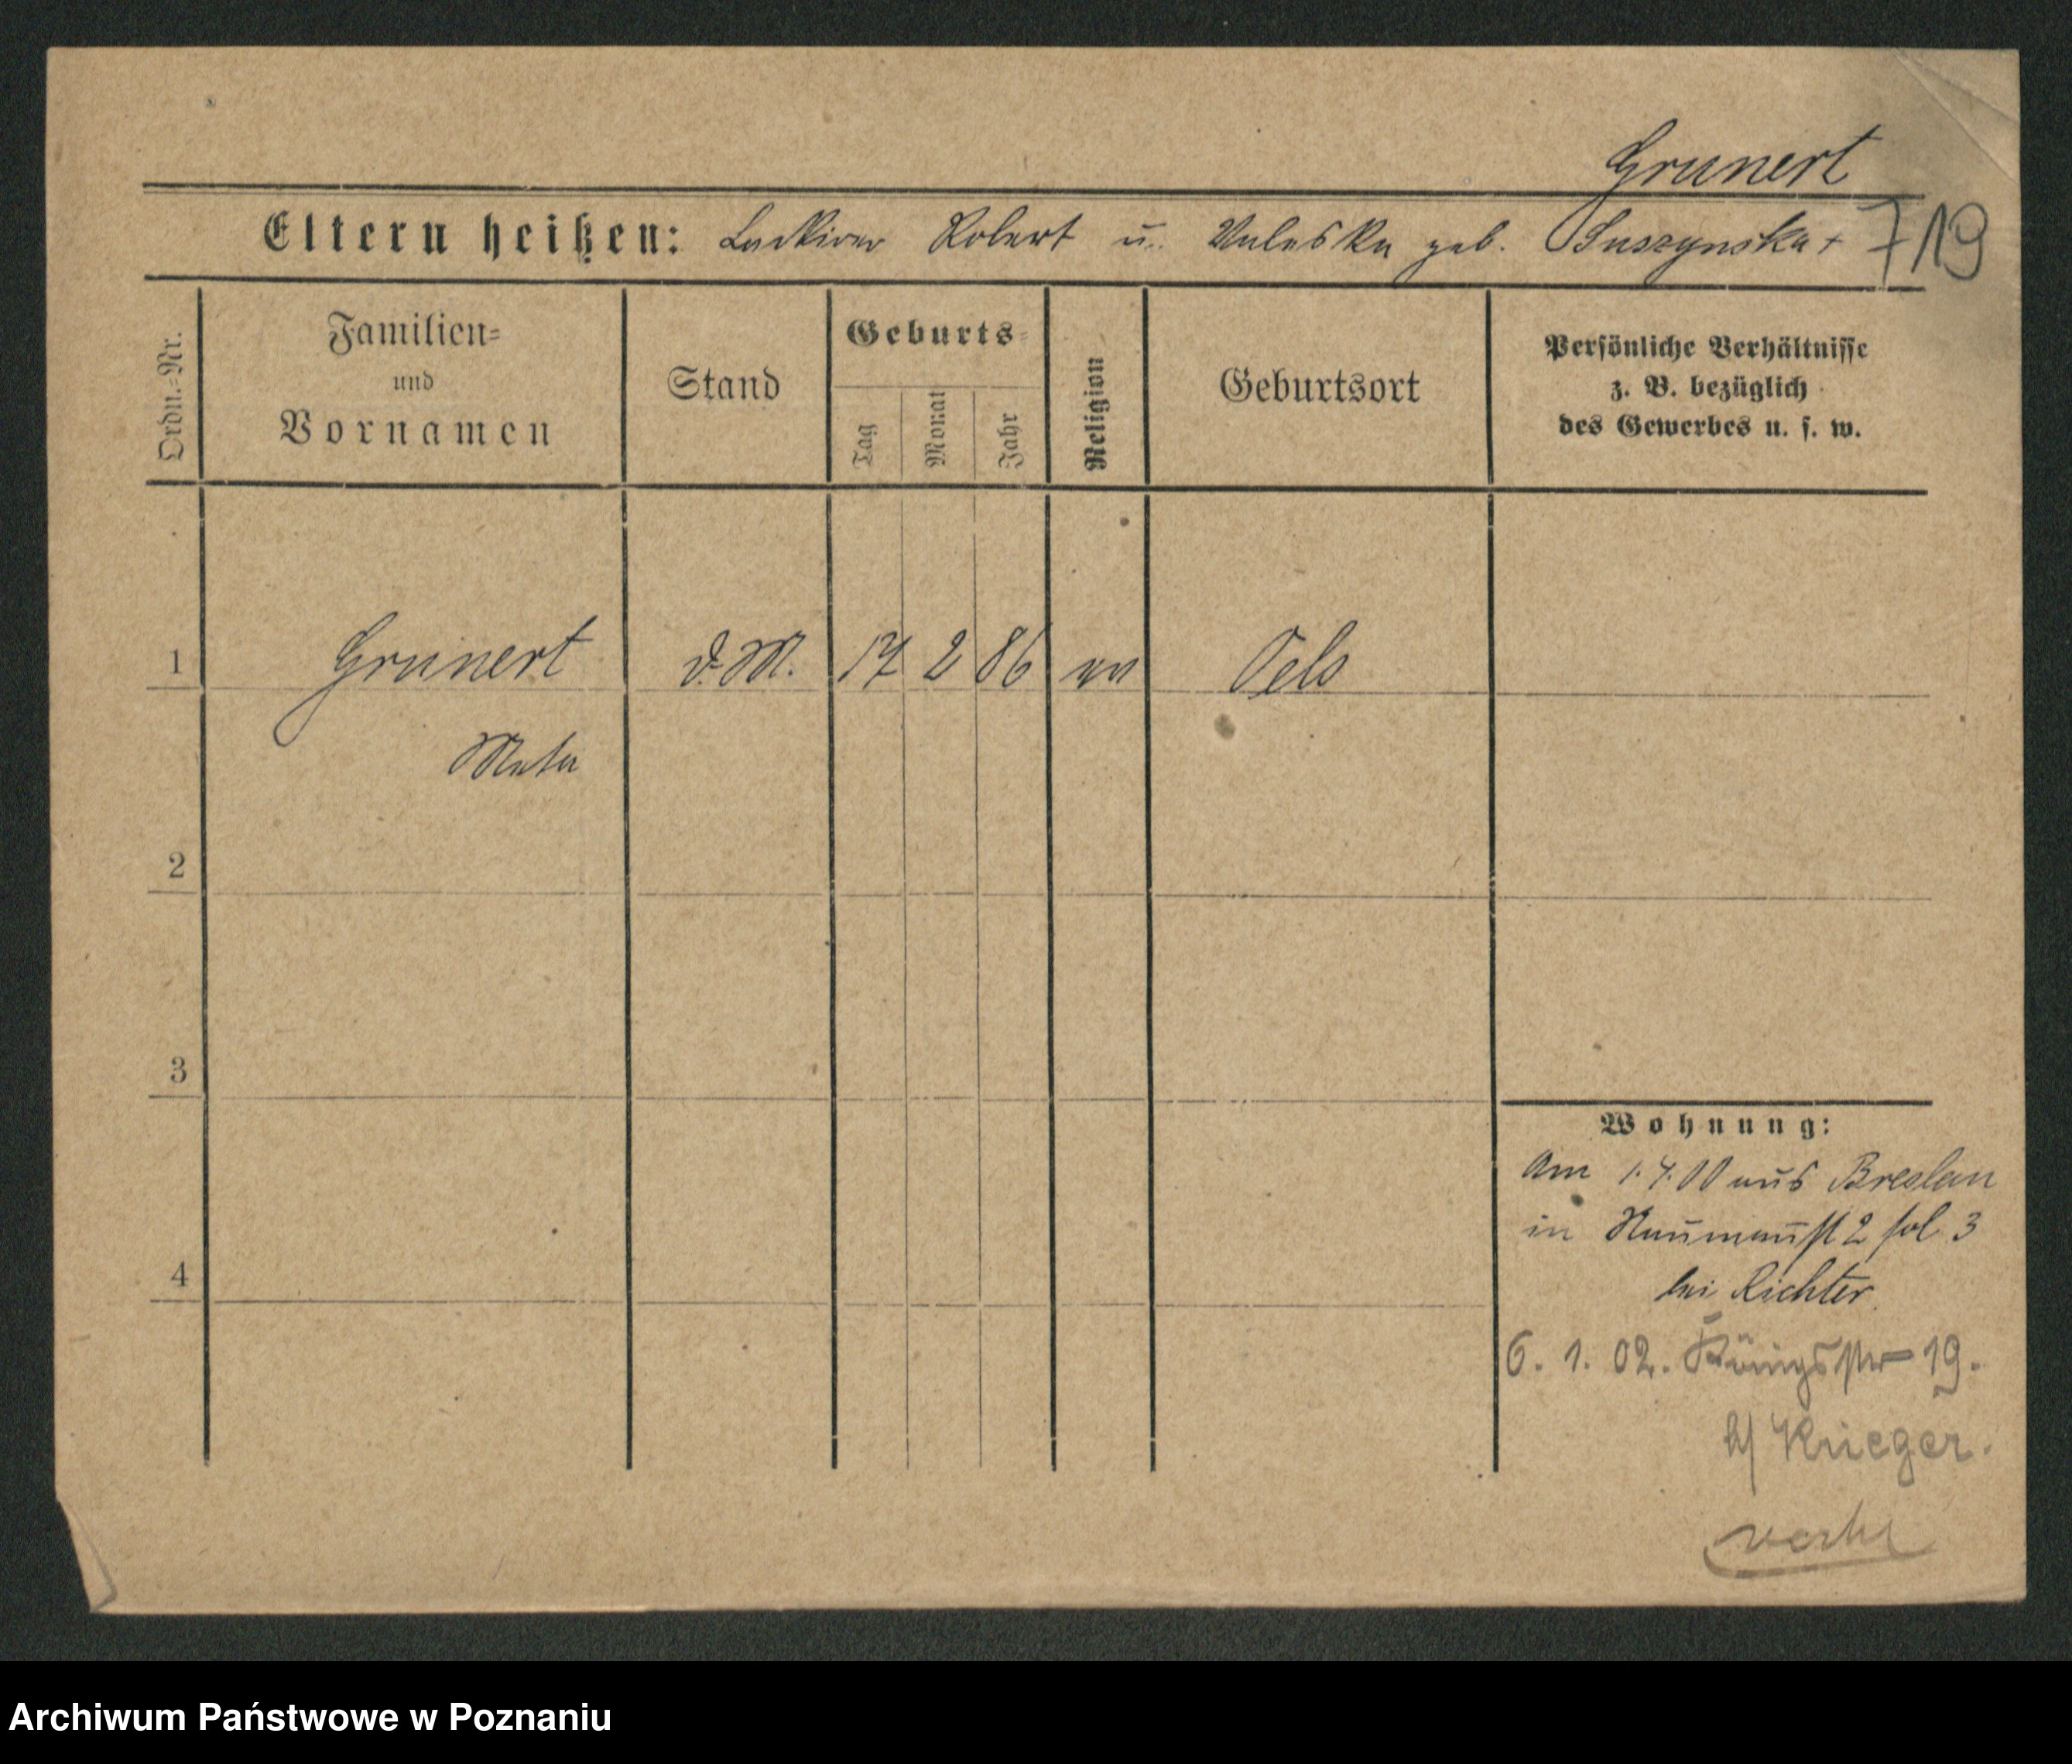 Grunert
Eltern heißen: Lackirer Robert u. Valeska geb. Suszynska + 719
Ordn.-Nr.
Familien-
und
Vornamen
Stand
Geburts-
Tag
Monat
Jahr
Religion
Geburtsort
Persönliche Verhältnisse
z. B. bezüglich
des Gewerbes u. s. w.
1 Grunert d. M. 17 2 86 ev Oels
Meta
2
3
4
Wohnung:
Am 1.7.00 aus Breslau
in Naumannst 2 fol 3
bei Richter
6. 1. 02. Königsstr 19.
b/ Krieger.
Archiwum Państwowe w Poznaniu